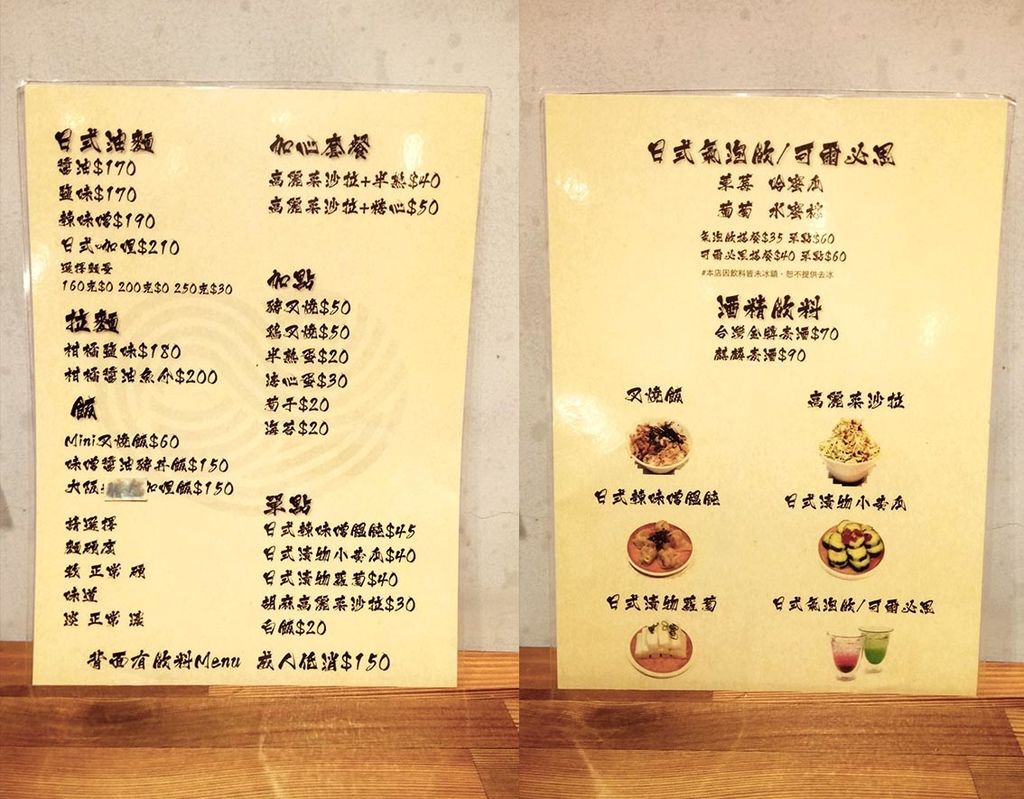 日式油麵
醬油$170
鹽味$170
辣味噌$190
日式咖哩$210
選擇麵量
160克$0 200克$0 250克$30
拉麵
柑橘鹽味$180
柑橘醬油魚介$200
飯
Mini叉燒飯$60
味噌醬油豬丼飯$150
大阪 咖哩飯$150
請選擇
麵硬度
軟 正常 硬
味道
淡 正常 濃
加心套餐
高麗菜沙拉+半熟$40
高麗菜沙拉+糖心$50
加點
豬叉燒$50
雞叉燒$50
半熟蛋$20
溏心蛋$30
筍干$20
海苔$20
單點
日式辣味噌餛飩$45
日式漬物小黃瓜$40
日式漬物蘿蔔$40
胡麻高麗菜沙拉$30
白飯$20
背面有飲料Menu 每人低消$150
日式氣泡飲/可爾必思
草莓 哈蜜瓜
葡萄 水蜜桃
氣泡飲搭餐$35 單點$60
可爾必思搭餐$40 單點$60
#本店因飲料皆未冰鎮，恕不提供去冰
酒精飲料
台灣金牌麥酒$70
麒麟麥酒$90
叉燒飯 高麗菜沙拉
日式辣味噌餛飩 日式漬物小黃瓜
日式漬物蘿蔔 日式氣泡飲/可爾必思